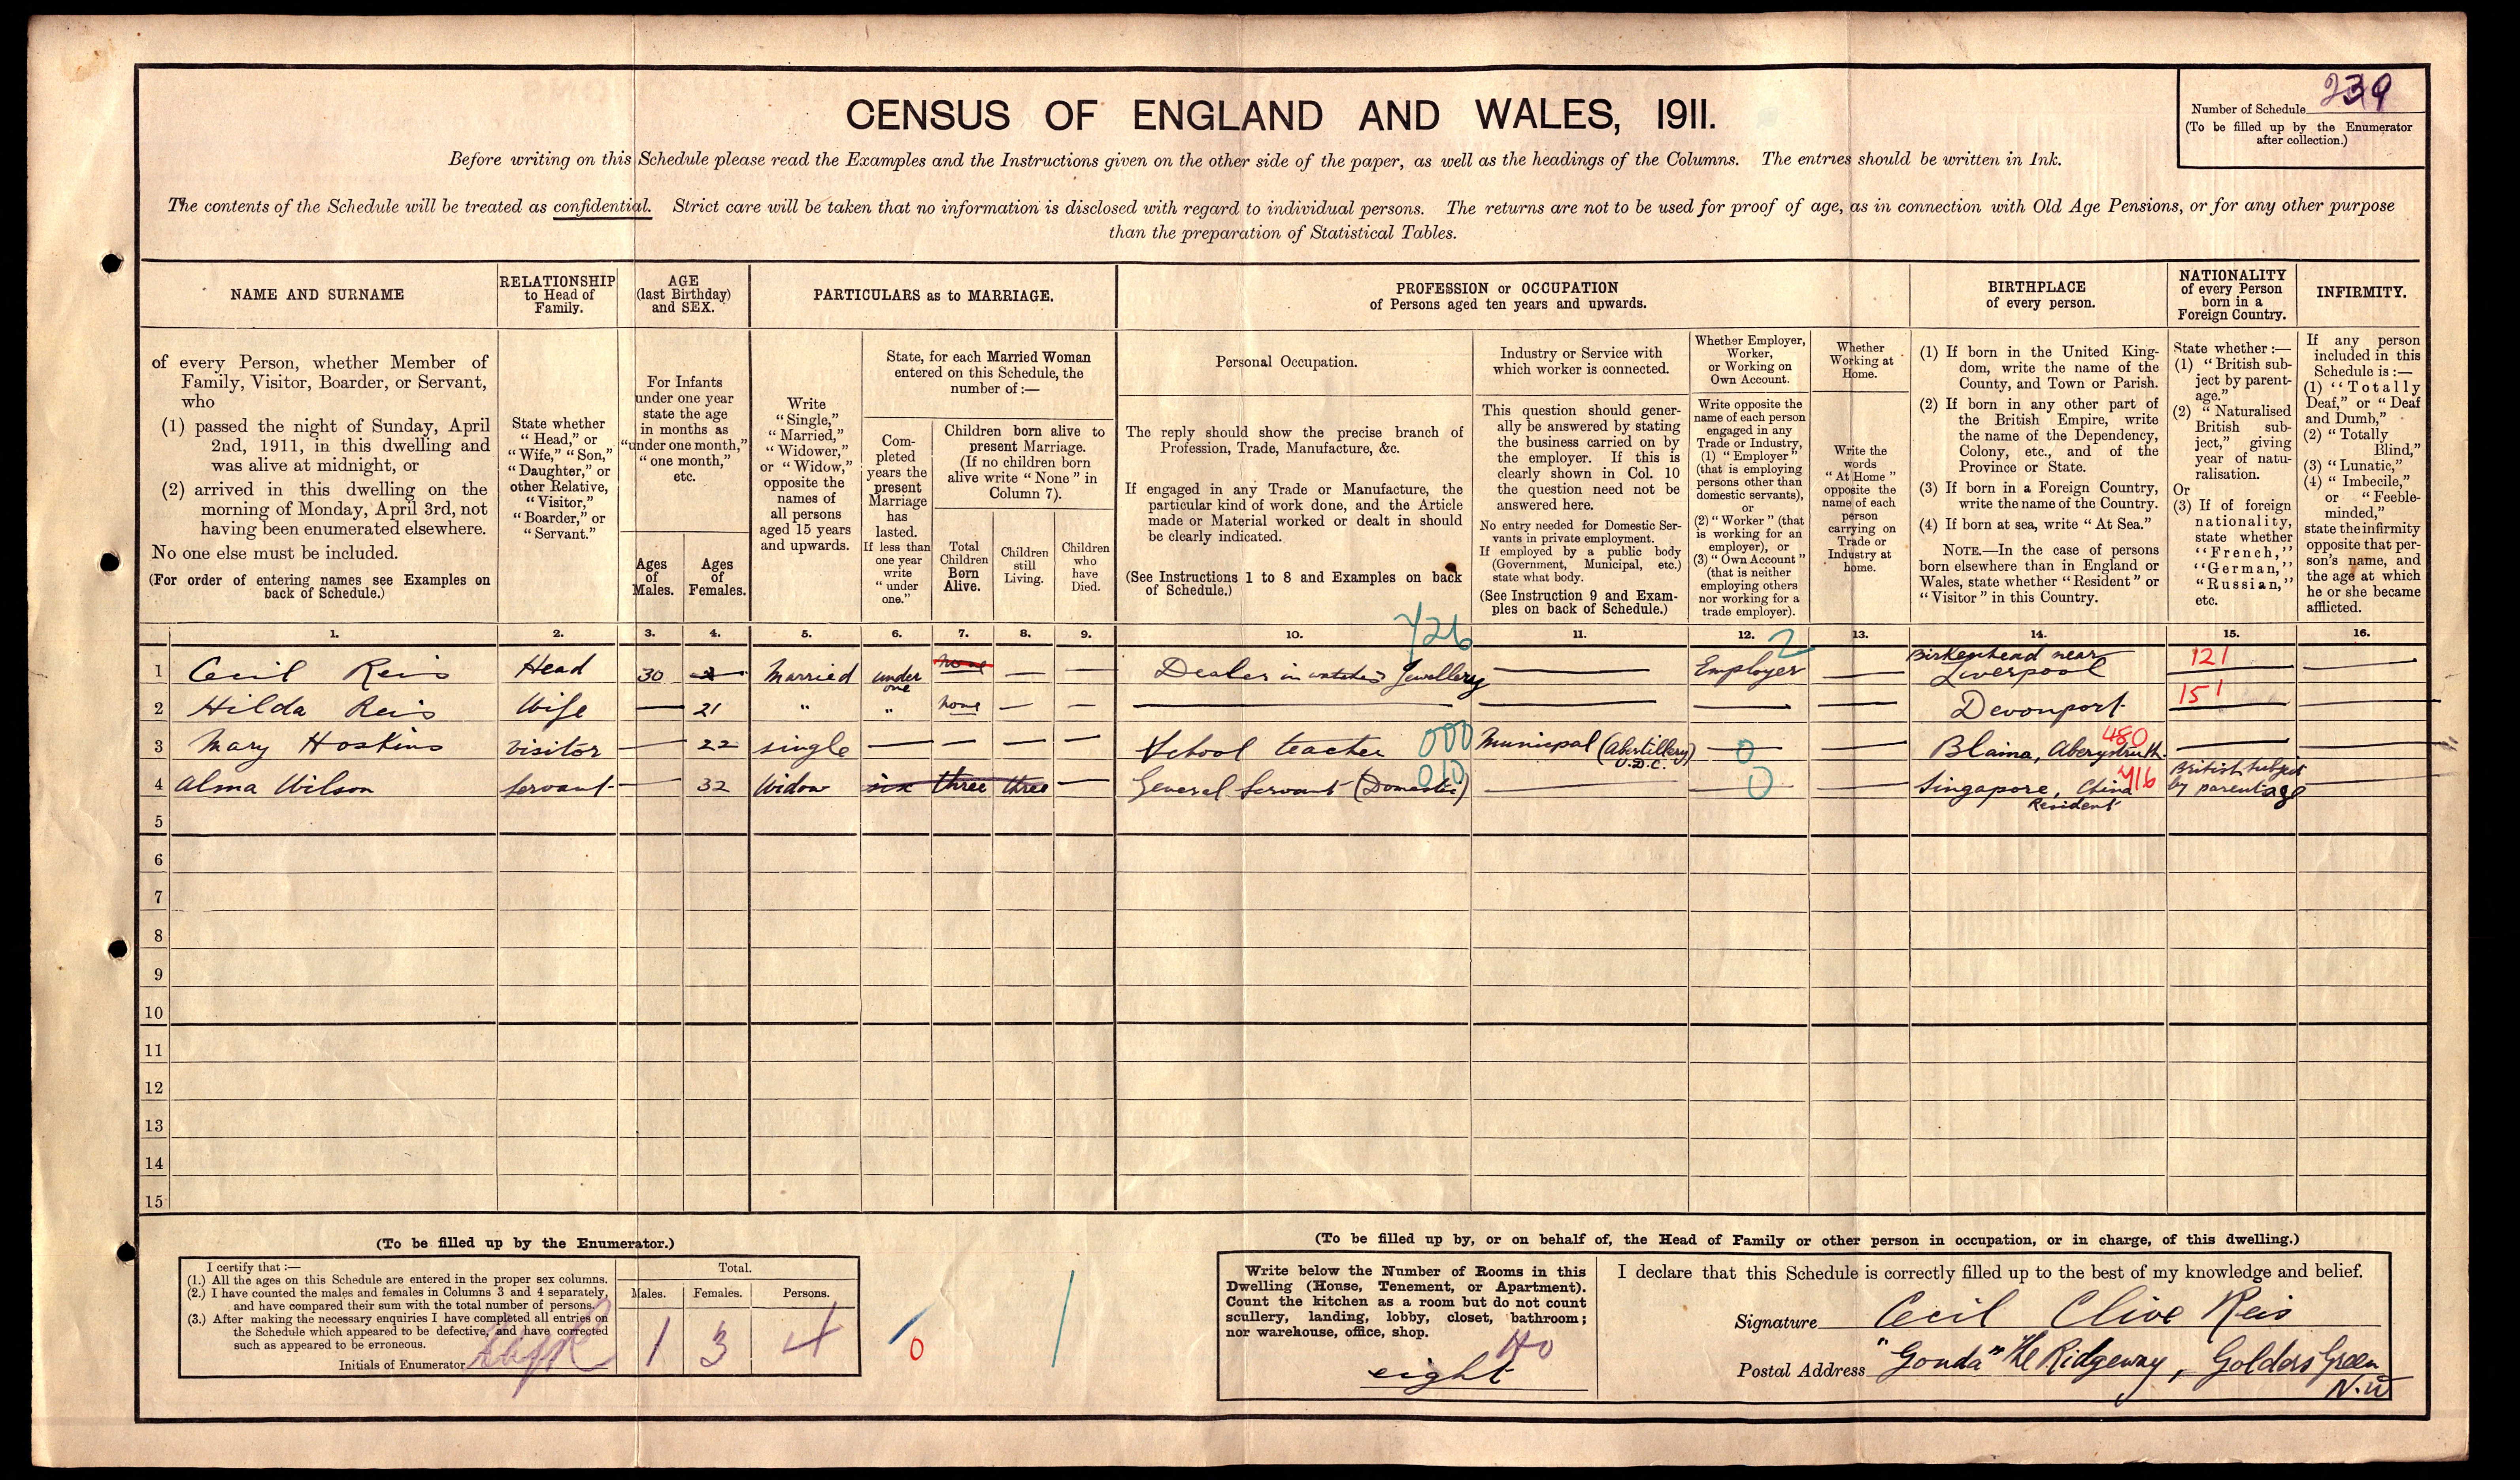 CENSUS OF ENGLAND AND WALES, 1911.
Number of Schedule 239
(To be filled up by the Enumerator
after collection.)
Before writing on this Schedule please read the Examples and the Instructions given on the other side of the paper, as well as the headings of the Columns. The entries should be written in Ink.
The contents of the Schedule will be treated as confidential. Strict care will be taken that no information is disclosed with regard to individual persons. The returns are not to be used for proof of age, as in connection with Old Age Pensions, or for any other purpose
than the preparation of Statistical Tables.
NAME AND SURNAME
of every Person, whether Member of
Family, Visitor, Boarder, or Servant,
who
(1) passed the night of Sunday, April
2nd, 1911, in this dwelling and
was alive at midnight, or
(2) arrived in this dwelling on the
morning of Monday, April 3rd, not
having been enumerated elsewhere.
No one else must be included.
(For order of entering names see Examples on
back of Schedule.)
RELATIONSHIP
to Head of
Family.
State whether
"Head," or
"Wife," "Son,"
"Daughter," or
other Relative,
"Visitor,"
"Boarder," or
"Servant."
AGE
(last Birthday)
and SEX.
For Infants
under one year
state the age
in months as
"under one month,"
"one month,"
etc.
Ages
of
Males.
Ages
of
Females.
PARTICULARS as to MARRIAGE.
Write
"Single,"
"Married,"
"Widower,"
or "Widow,"
opposite the
names of
all persons
aged 15 years
and upwards.
State, for each Married Woman
entered on this Schedule, the
number of:—
Com-
pleted
years the
present
Marriage
has
lasted.
If less than
one year
write
"under
one."
Children born alive to
present Marriage.
(If no children born
alive write "None" in
Column 7).
Total
Children
Born
Alive.
Children
still
Living.
Children
who
have
Died.
PROFESSION or OCCUPATION
of Persons aged ten years and upwards.
Personal Occupation.
The reply should show the precise branch of
Profession, Trade, Manufacture, &c.
If engaged in any Trade or Manufacture, the
particular kind of work done, and the Article
made or Material worked or dealt in should
be clearly indicated.
(See Instructions 1 to 8 and Examples on back
of Schedule.)
Industry or Service with
which worker is connected.
This question should gener-
ally be answered by stating
the business carried on by
the employer. If this is
clearly shown in Col. 10
the question need not be
answered here.
No entry needed for Domestic Ser-
vants in private employment.
If employed by a public body
(Government, Municipal, etc.)
state what body.
(See Instruction 9 and Exam-
ples on back of Schedule.)
Whether Employer,
Worker,
or Working on
Own Account.
Write opposite the
name of each person
engaged in any
Trade or Industry,
(1) "Employer"
(that is employing
persons other than
domestic servants),
or
(2) "Worker" (that
is working for an
employer), or
(3) "Own Account"
(that is neither
employing others
nor working for a
trade employer).
Whether
Working at
Home.
Write the
words
"At Home"
opposite the
name of each
person
carrying on
Trade or
Industry at
home.
BIRTHPLACE
of every person.
(1) If born in the United King-
dom, write the name of the
County, and Town or Parish.
(2) If born in any other part of
the British Empire, write
the name of the Dependency,
Colony, etc., and of the
Province or State.
(3) If born in a Foreign Country,
write the name of the Country.
(4) If born at sea, write "At Sea."
NOTE.—In the case of persons
born elsewhere than in England or
Wales, state whether "Resident" or
"Visitor" in this Country.
NATIONALITY
of every Person
born in a
Foreign Country.
State whether:—
(1) "British sub-
ject by parent-
age."
(2) "Naturalised
British sub-
ject," giving
year of natu-
ralisation.
Or
(3) If of foreign
nationality,
state whether
"French,"
"German,"
"Russian,"
etc.
INFIRMITY.
If any person
included in this
Schedule is:—
(1) "Totally
Deaf," or "Deaf
and Dumb,"
(2) "Totally
Blind,"
(3) "Lunatic,"
(4) "Imbecile,"
or "Feeble-
minded,"
state the infirmity
opposite that per-
son's name, and
the age at which
he or she became
afflicted.
1. 2. 3. 4. 5. 6. 7. 8. 9. 10. 11. 12. 13. 14. 15. 16.
726 2
1 Cecil Reis Head 30 — Married under one none — — Dealer in watches Jewellery — Employer — Birkenhead near Liverpool 121 —
2 Hilda Reis Wife — 21 " " none — — — — — — Devonport 151 —
3 Mary Hoskins visitor — 22 single — — — — School teacher 000 Municipal (Abertillery) U.D.C. — 0 — Blaina, Aberystruth. 480 —
4 Alma Wilson servant — 32 Widow six three three — General Servant (Domestic) 010 — 0 — Singapore, China Resident 716 British subject by parentage —
5
6
7
8
9
10
11
12
13
14
15
(To be filled up by the Enumerator.)
I certify that:—
(1.) All the ages on this Schedule are entered in the proper sex columns.
(2.) I have counted the males and females in Columns 3 and 4 separately,
and have compared their sum with the total number of persons.
(3.) After making the necessary enquiries I have completed all entries on
the Schedule which appeared to be defective, and have corrected
such as appeared to be erroneous.
Initials of Enumerator
Total.
Males. Females. Persons.
1 3 4
0
(To be filled up by, or on behalf of, the Head of Family or other person in occupation, or in charge, of this dwelling.)
Write below the Number of Rooms in this
Dwelling (House, Tenement, or Apartment).
Count the kitchen as a room but do not count
scullery, landing, lobby, closet, bathroom;
nor warehouse, office, shop.
eight
I declare that this Schedule is correctly filled up to the best of my knowledge and belief.
Signature Cecil Clive Reis
Postal Address "Gouda" The Ridgeway, Golders Green
N.W